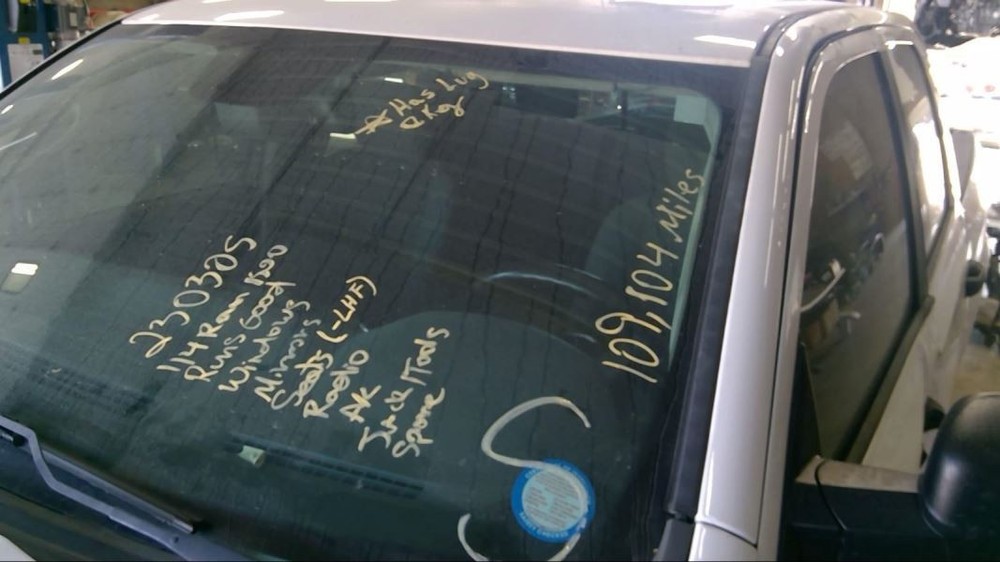 ☆ Has Lug
Key
109,804 Miles
230305
'14 Ram 1500
Runs Good
Windows
Mirrors
Seats (-LHF)
Radio
AC
Jack/Tools
Spare